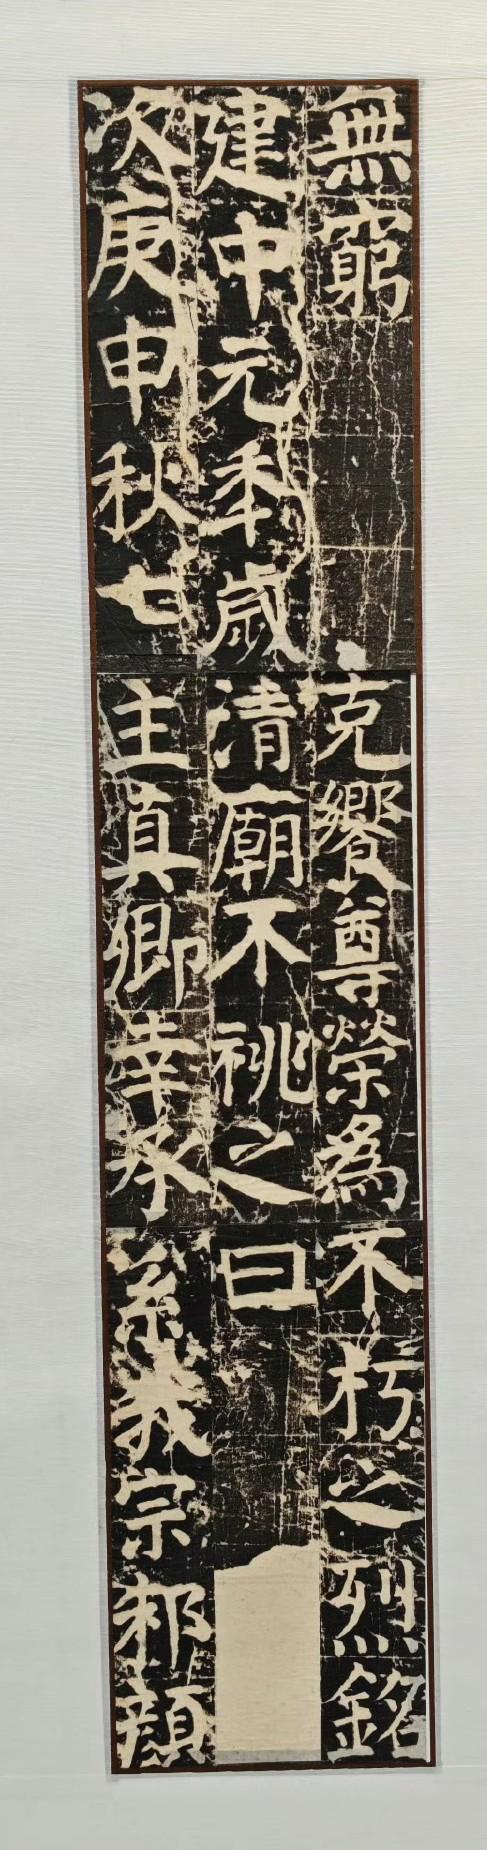 無窮
建中元年歲
次庚申秋七
克饗尊榮為
清廟不祧之
主真卿幸承
不朽之烈銘
曰
系我宗邾顏